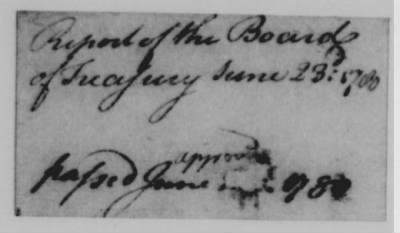 Report of the Board
of Treasury June 23d: 1780
approved
passed June 1780